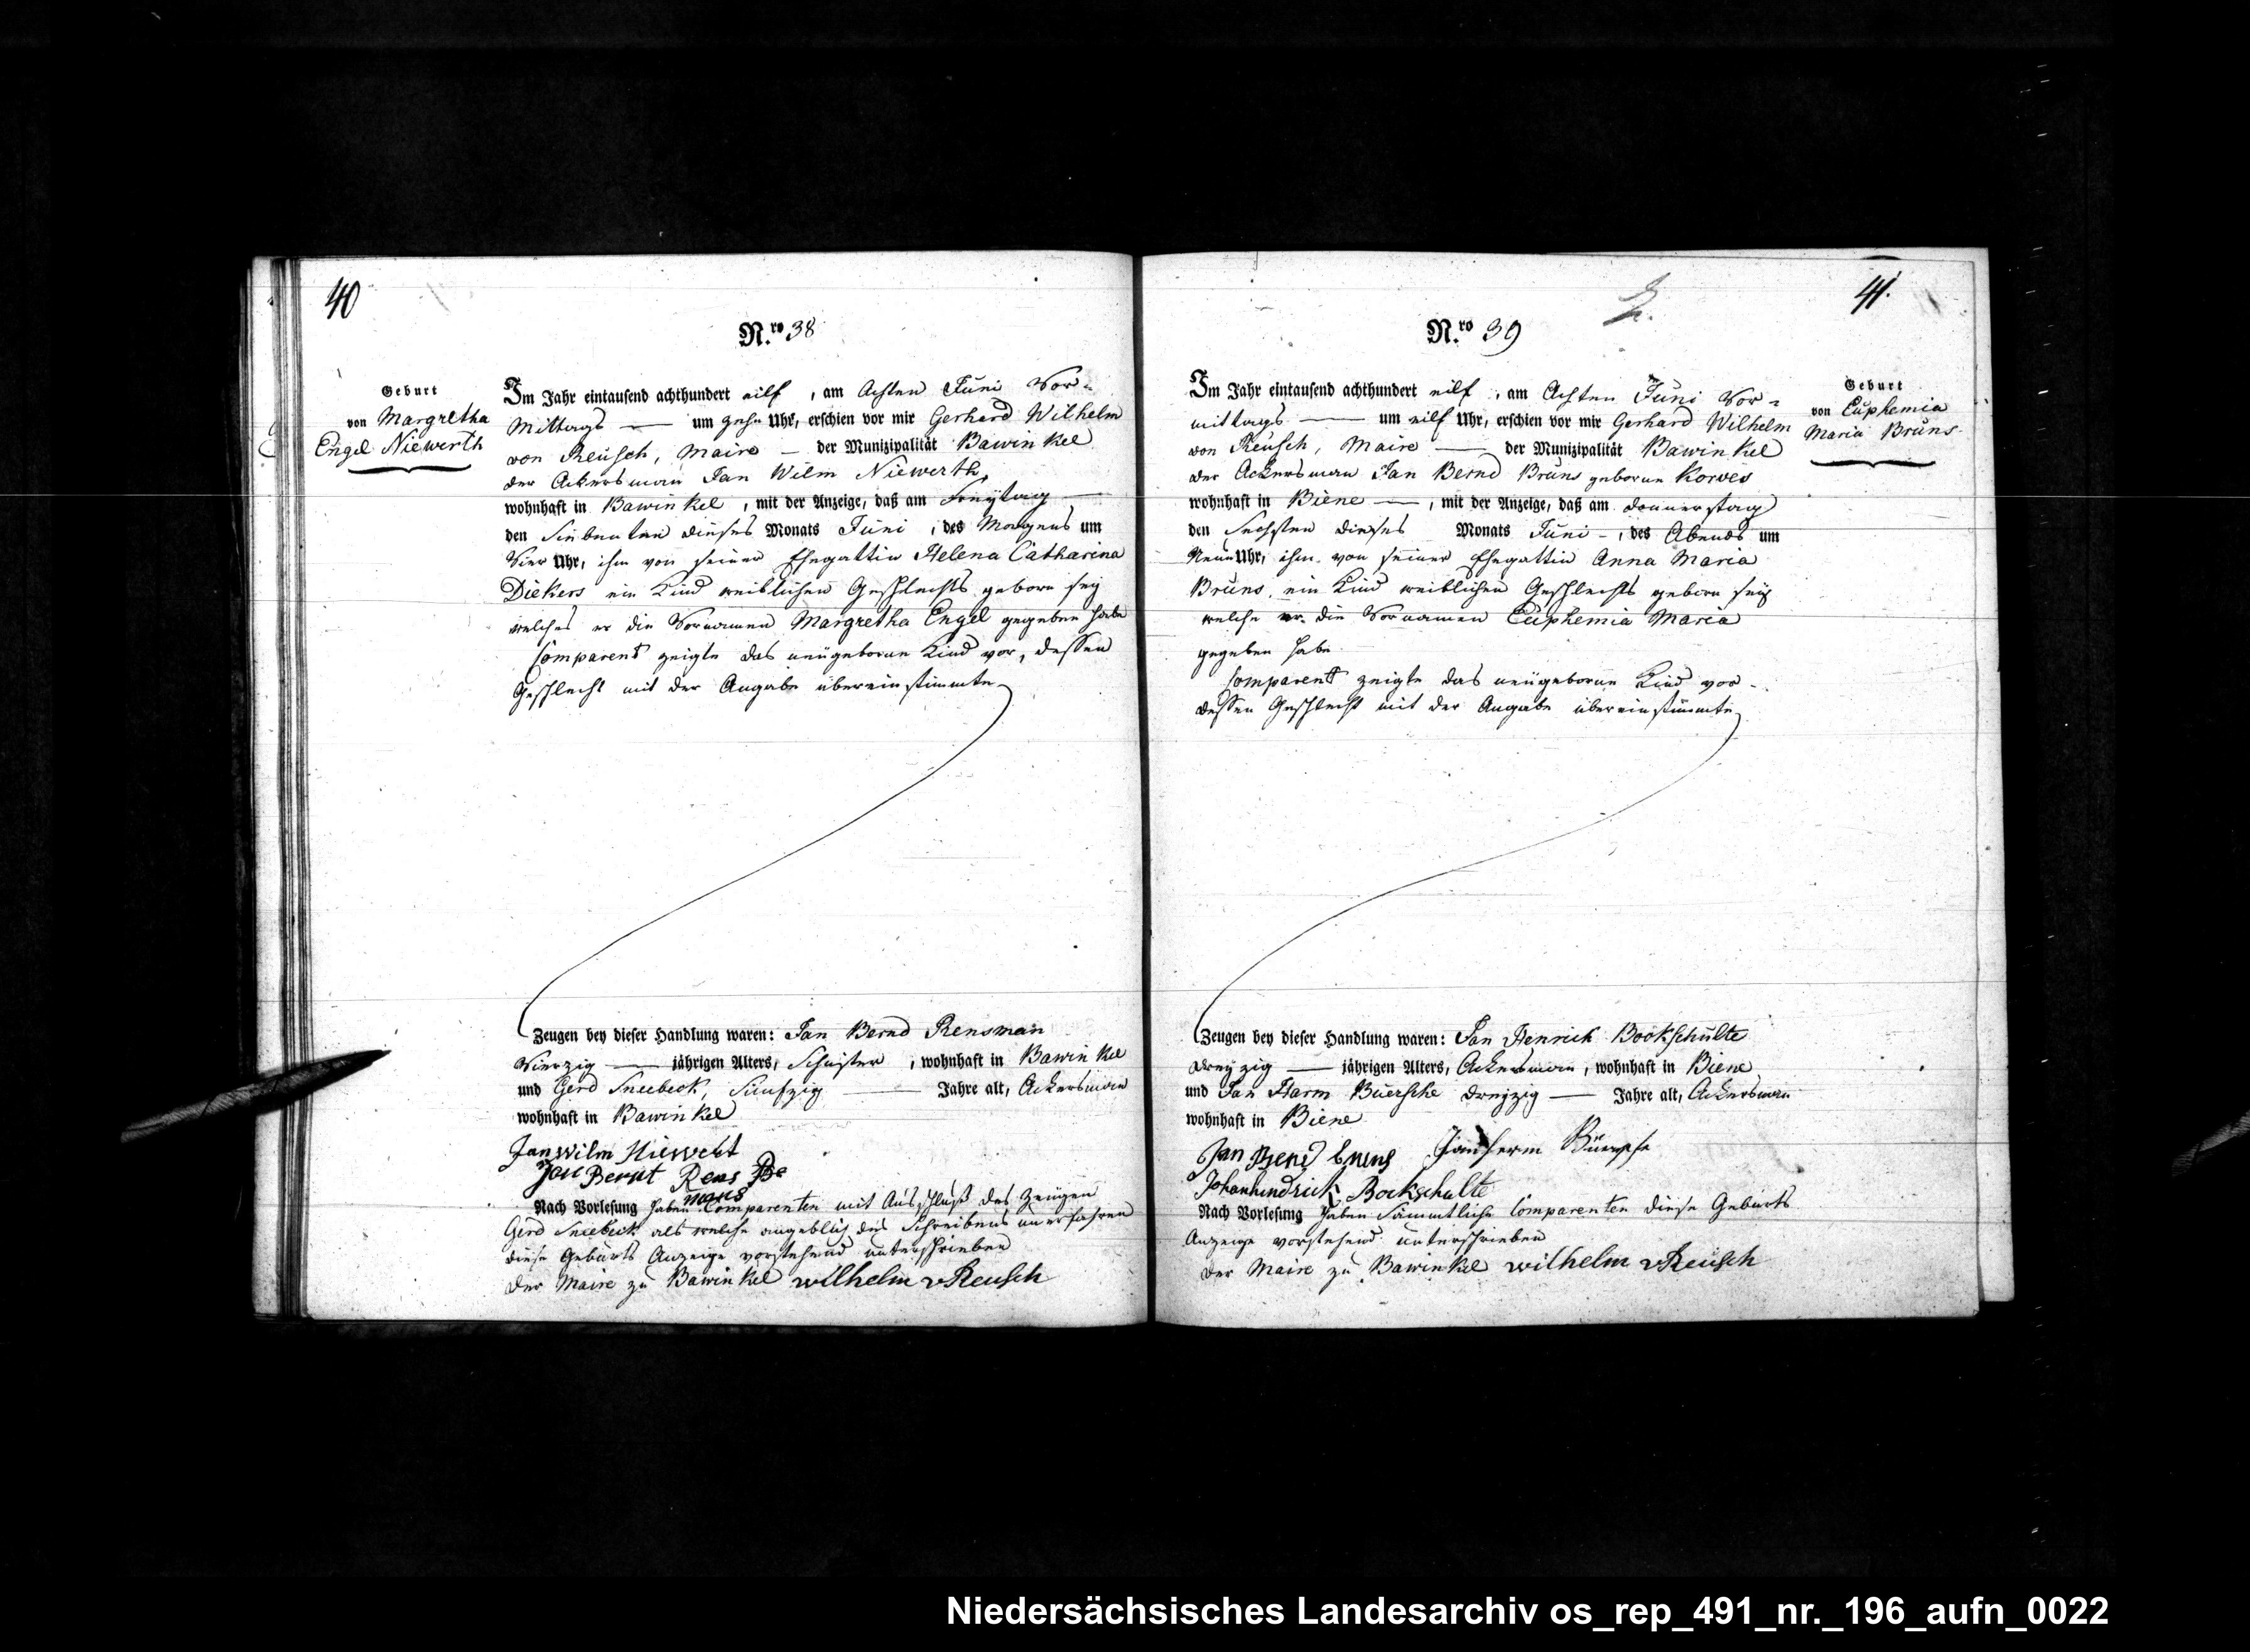 40
N.ro 38
Geburt
von Margretha
Engel Niewerth
Im Jahr eintausend achthundert eilf , am Achten Juni Vor-
Mittags — um zehn Uhr, erschien vor mir Gerhard Wilhelm
von Reusch, Maire — der Munizipalität Bawinkel
der Ackersman Jan Wilm Niewerth,
wohnhaft in Bawinkel , mit der Anzeige, daß am Freytag —
den Siebenten dieses Monats Juni , des Morgens um
Vier Uhr, ihm von seiner Ehegattin Helena Catharina
Diekers ein Kind weiblichen Geschlechts geborn sey
welches er die Vornamen Margretha Engel gegeben habe
Comparent zeigte das neugeborne Kind vor, dessen
Geschlecht mit der Angabe übereinstimmte
Zeugen bey dieser Handlung waren: Jan Bernd Rensman
Vierzig — jährigen Alters, Schuster , wohnhaft in Bawinkel
und Gerd Sneebeck, Fünfzig — Jahre alt, Ackersman
wohnhaft in Bawinkel
Jan wilm Niewert
Jan Bernt Rens
mans
Nach Vorlesung haben Comparenten mit Ausschluß des Zeugen
Gerd Sneebeck als welche angeblich des Schreibens unerfahren
diese Geburts Anzeige vorstehend unterschrieben
Der Maire zu Bawinkel wilhelm vReusch
41.
N.ro 39
Geburt
von Euphemia
Maria Bruns
Im Jahr eintausend achthundert eilf , am Achten Juni Vor-
mittags — um eilf Uhr, erschien vor mir Gerhard Wilhelm
von Reusch, Maire — der Munizipalität Bawinkel
der Ackersman Jan Bernd Bruns geborne Korves
wohnhaft in Biene — , mit der Anzeige, daß am donnerstag
den Sechsten dieses Monats Juni - , des Abends um
Neun Uhr, ihm von seiner Ehegattin Anna Maria
Bruns, ein Kind weiblichen Geschlechts geborn sey
welche er die Vornamen Euphemia Maria
gegeben habe
Comparent zeigte das neugeborne Kind vor -
dessen Geschlecht mit der Angabe übereinstimmte
Zeugen bey dieser Handlung waren: Jan Henrich Bookschulte
dreyzig — jährigen Alters, Ackersman , wohnhaft in Biene
und Jan Harm Büersche dreyzig — Jahre alt, Ackersman
wohnhaft in Biene
Jan Bend Bruns Jan herm
Johanhendrick Bockschulte
Nach Vorlesung haben Sämmtliche Comparenten diese Geburts
Anzeige vorstehend unterschrieben
Der Maire zu Bawinkel wilhelm vReusch
Niedersächsisches Landesarchiv os_rep_491_nr._196_aufn_0022